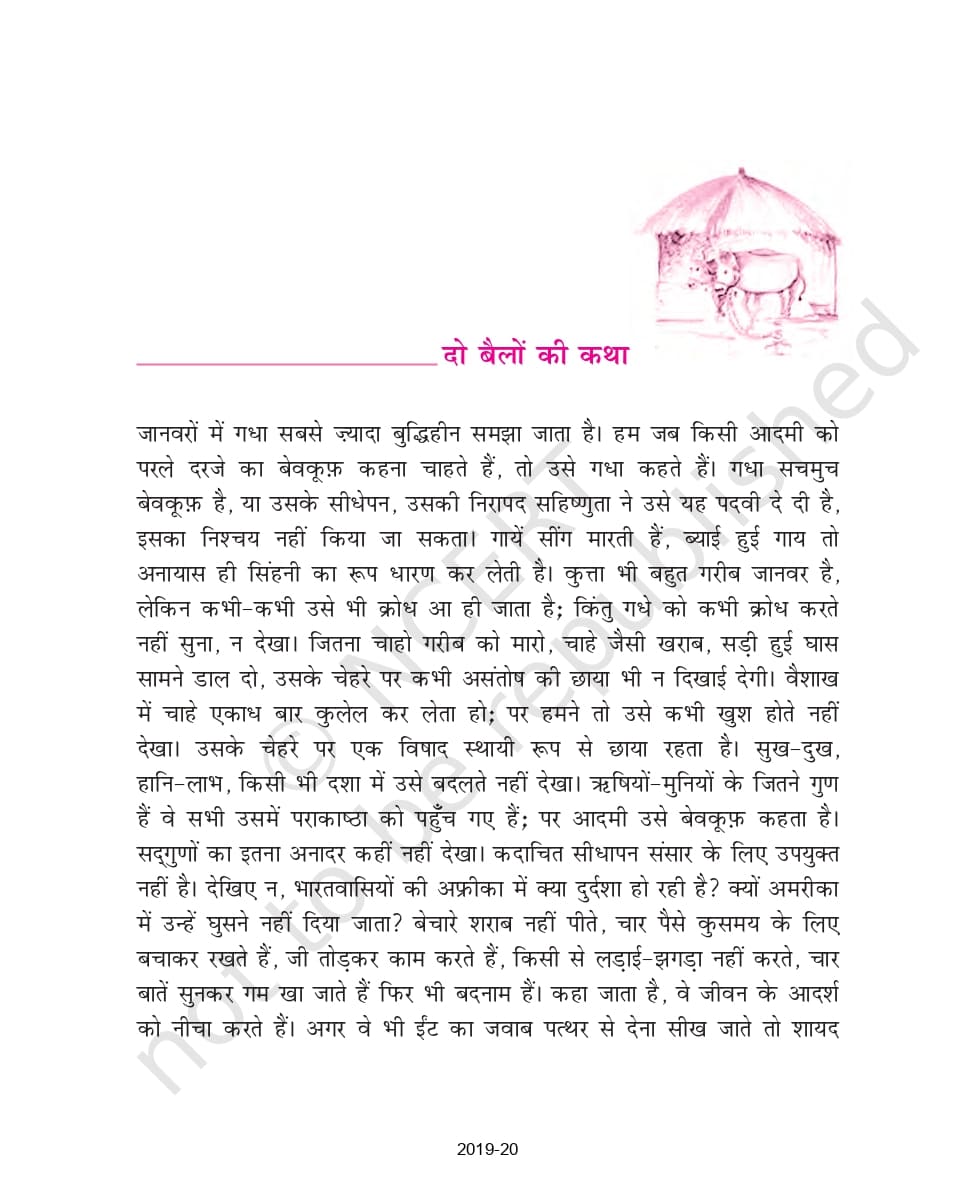 दो बैलों की कथा
जानवरों में गधा सबसे ज़्यादा बुद्धिहीन समझा जाता है। हम जब किसी आदमी को
परले दरजे का बेवकूफ़ कहना चाहते हैं, तो उसे गधा कहते हैं। गधा सचमुच
बेवकूफ़ है, या उसके सीधेपन, उसकी निरापद सहिष्णुता ने उसे यह पदवी दे दी है,
इसका निश्चय नहीं किया जा सकता। गायें सींग मारती हैं, ब्याई हुई गाय तो
अनायास ही सिंहनी का रूप धारण कर लेती है। कुत्ता भी बहुत गरीब जानवर है,
लेकिन कभी-कभी उसे भी क्रोध आ ही जाता है; किंतु गधे को कभी क्रोध करते
नहीं सुना, न देखा। जितना चाहो गरीब को मारो, चाहे जैसी खराब, सड़ी हुई घास
सामने डाल दो, उसके चेहरे पर कभी असंतोष की छाया भी न दिखाई देगी। वैशाख
में चाहे एकाध बार कुलेल कर लेता हो; पर हमने तो उसे कभी खुश होते नहीं
देखा। उसके चेहरे पर एक विषाद स्थायी रूप से छाया रहता है। सुख-दुख,
हानि-लाभ, किसी भी दशा में उसे बदलते नहीं देखा। ऋषियों-मुनियों के जितने गुण
हैं वे सभी उसमें पराकाष्ठा को पहुँच गए हैं; पर आदमी उसे बेवकूफ़ कहता है।
सद्‌गुणों का इतना अनादर कहीं नहीं देखा। कदाचित सीधापन संसार के लिए उपयुक्त
नहीं है। देखिए न, भारतवासियों की अफ्रीका में क्या दुर्दशा हो रही है? क्यों अमरीका
में उन्हें घुसने नहीं दिया जाता? बेचारे शराब नहीं पीते, चार पैसे कुसमय के लिए
बचाकर रखते हैं, जी तोड़कर काम करते हैं, किसी से लड़ाई-झगड़ा नहीं करते, चार
बातें सुनकर गम खा जाते हैं फिर भी बदनाम हैं। कहा जाता है, वे जीवन के आदर्श
को नीचा करते हैं। अगर वे भी ईंट का जवाब पत्थर से देना सीख जाते तो शायद
© NCERT
not to be republished
2019-20